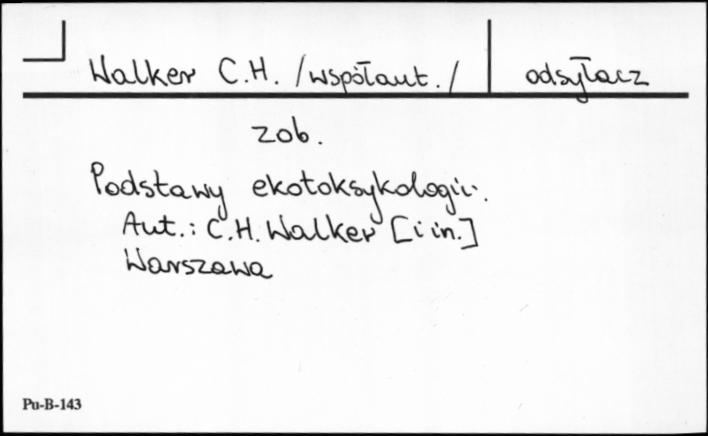 Walker C.H. /współaut./
odsyłacz
zob.
Podstawy ekotoksykologii.
Aut.: C.H. Walker [i in.]
Warszawa
Pu-B-143